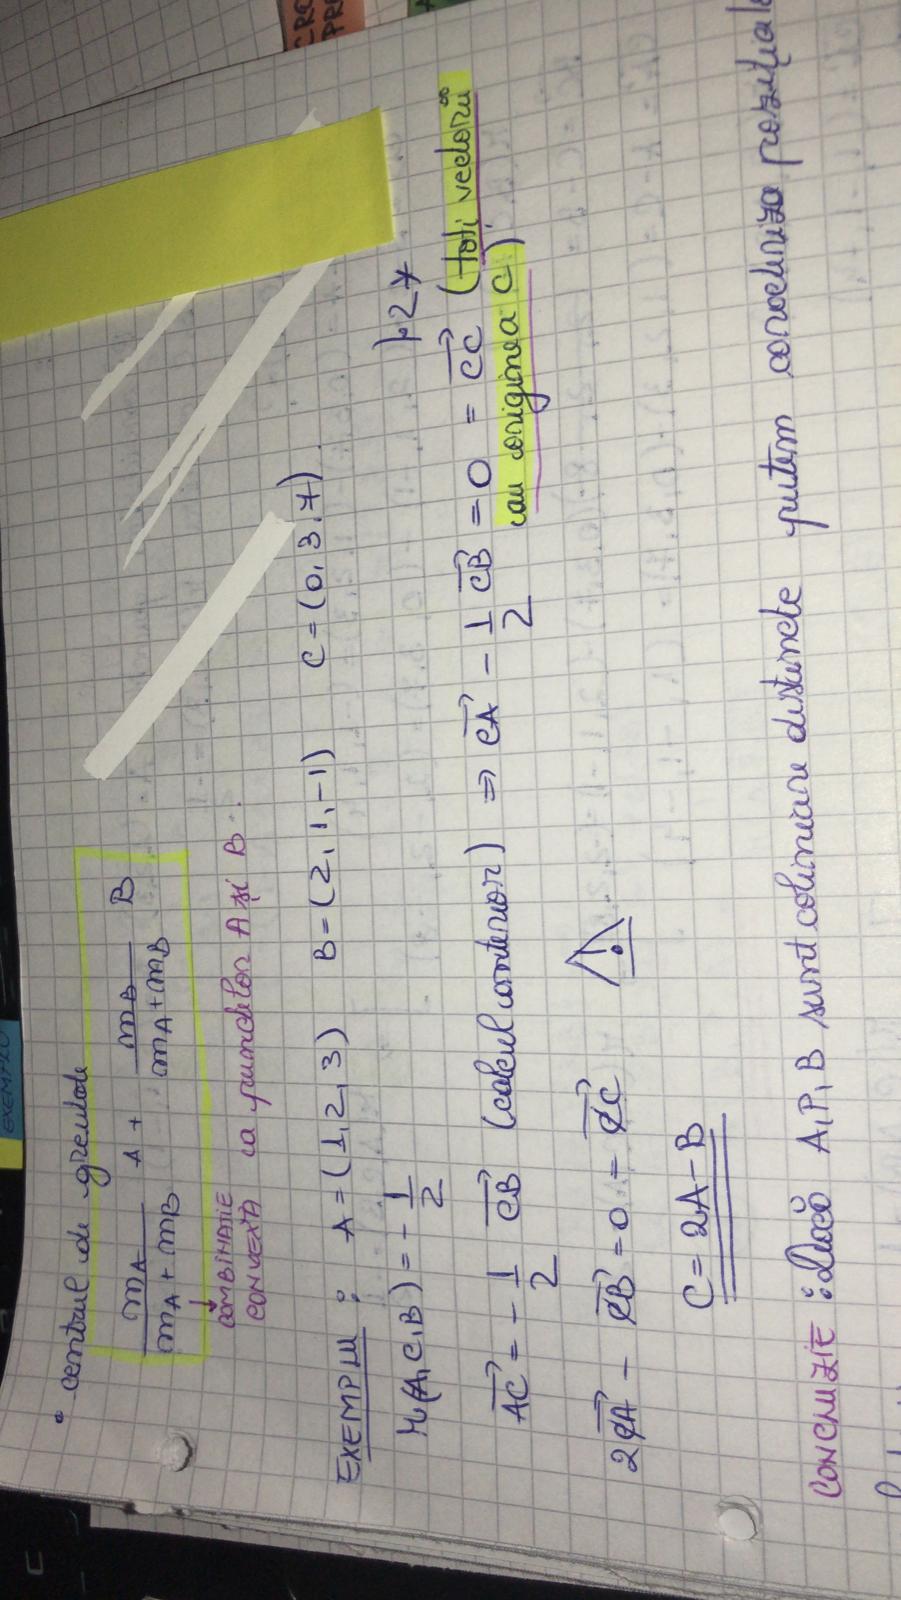 EXEMPLU
• centrul de greutate
mA / mA + mB A + mB / mA + mB B
↓
COMBINATIE
CONVEXĂ a punctelor A și B.
EXEMPLU : A = (1, 2, 3) B = (2, 1, -1) C = (0, 3, 7).
r(A, C, B) = - 1/2
|· 2
AC = - 1/2 CB (calcul anterior) ⇒ CA - 1/2 CB = 0 = CC (toti vectorii
au originea C)
2CA - CB = 0 = CC
C = 2A - B
CONCLUZIE : Dacă A, P, B sunt coliniare distincte putem
CRO
PR